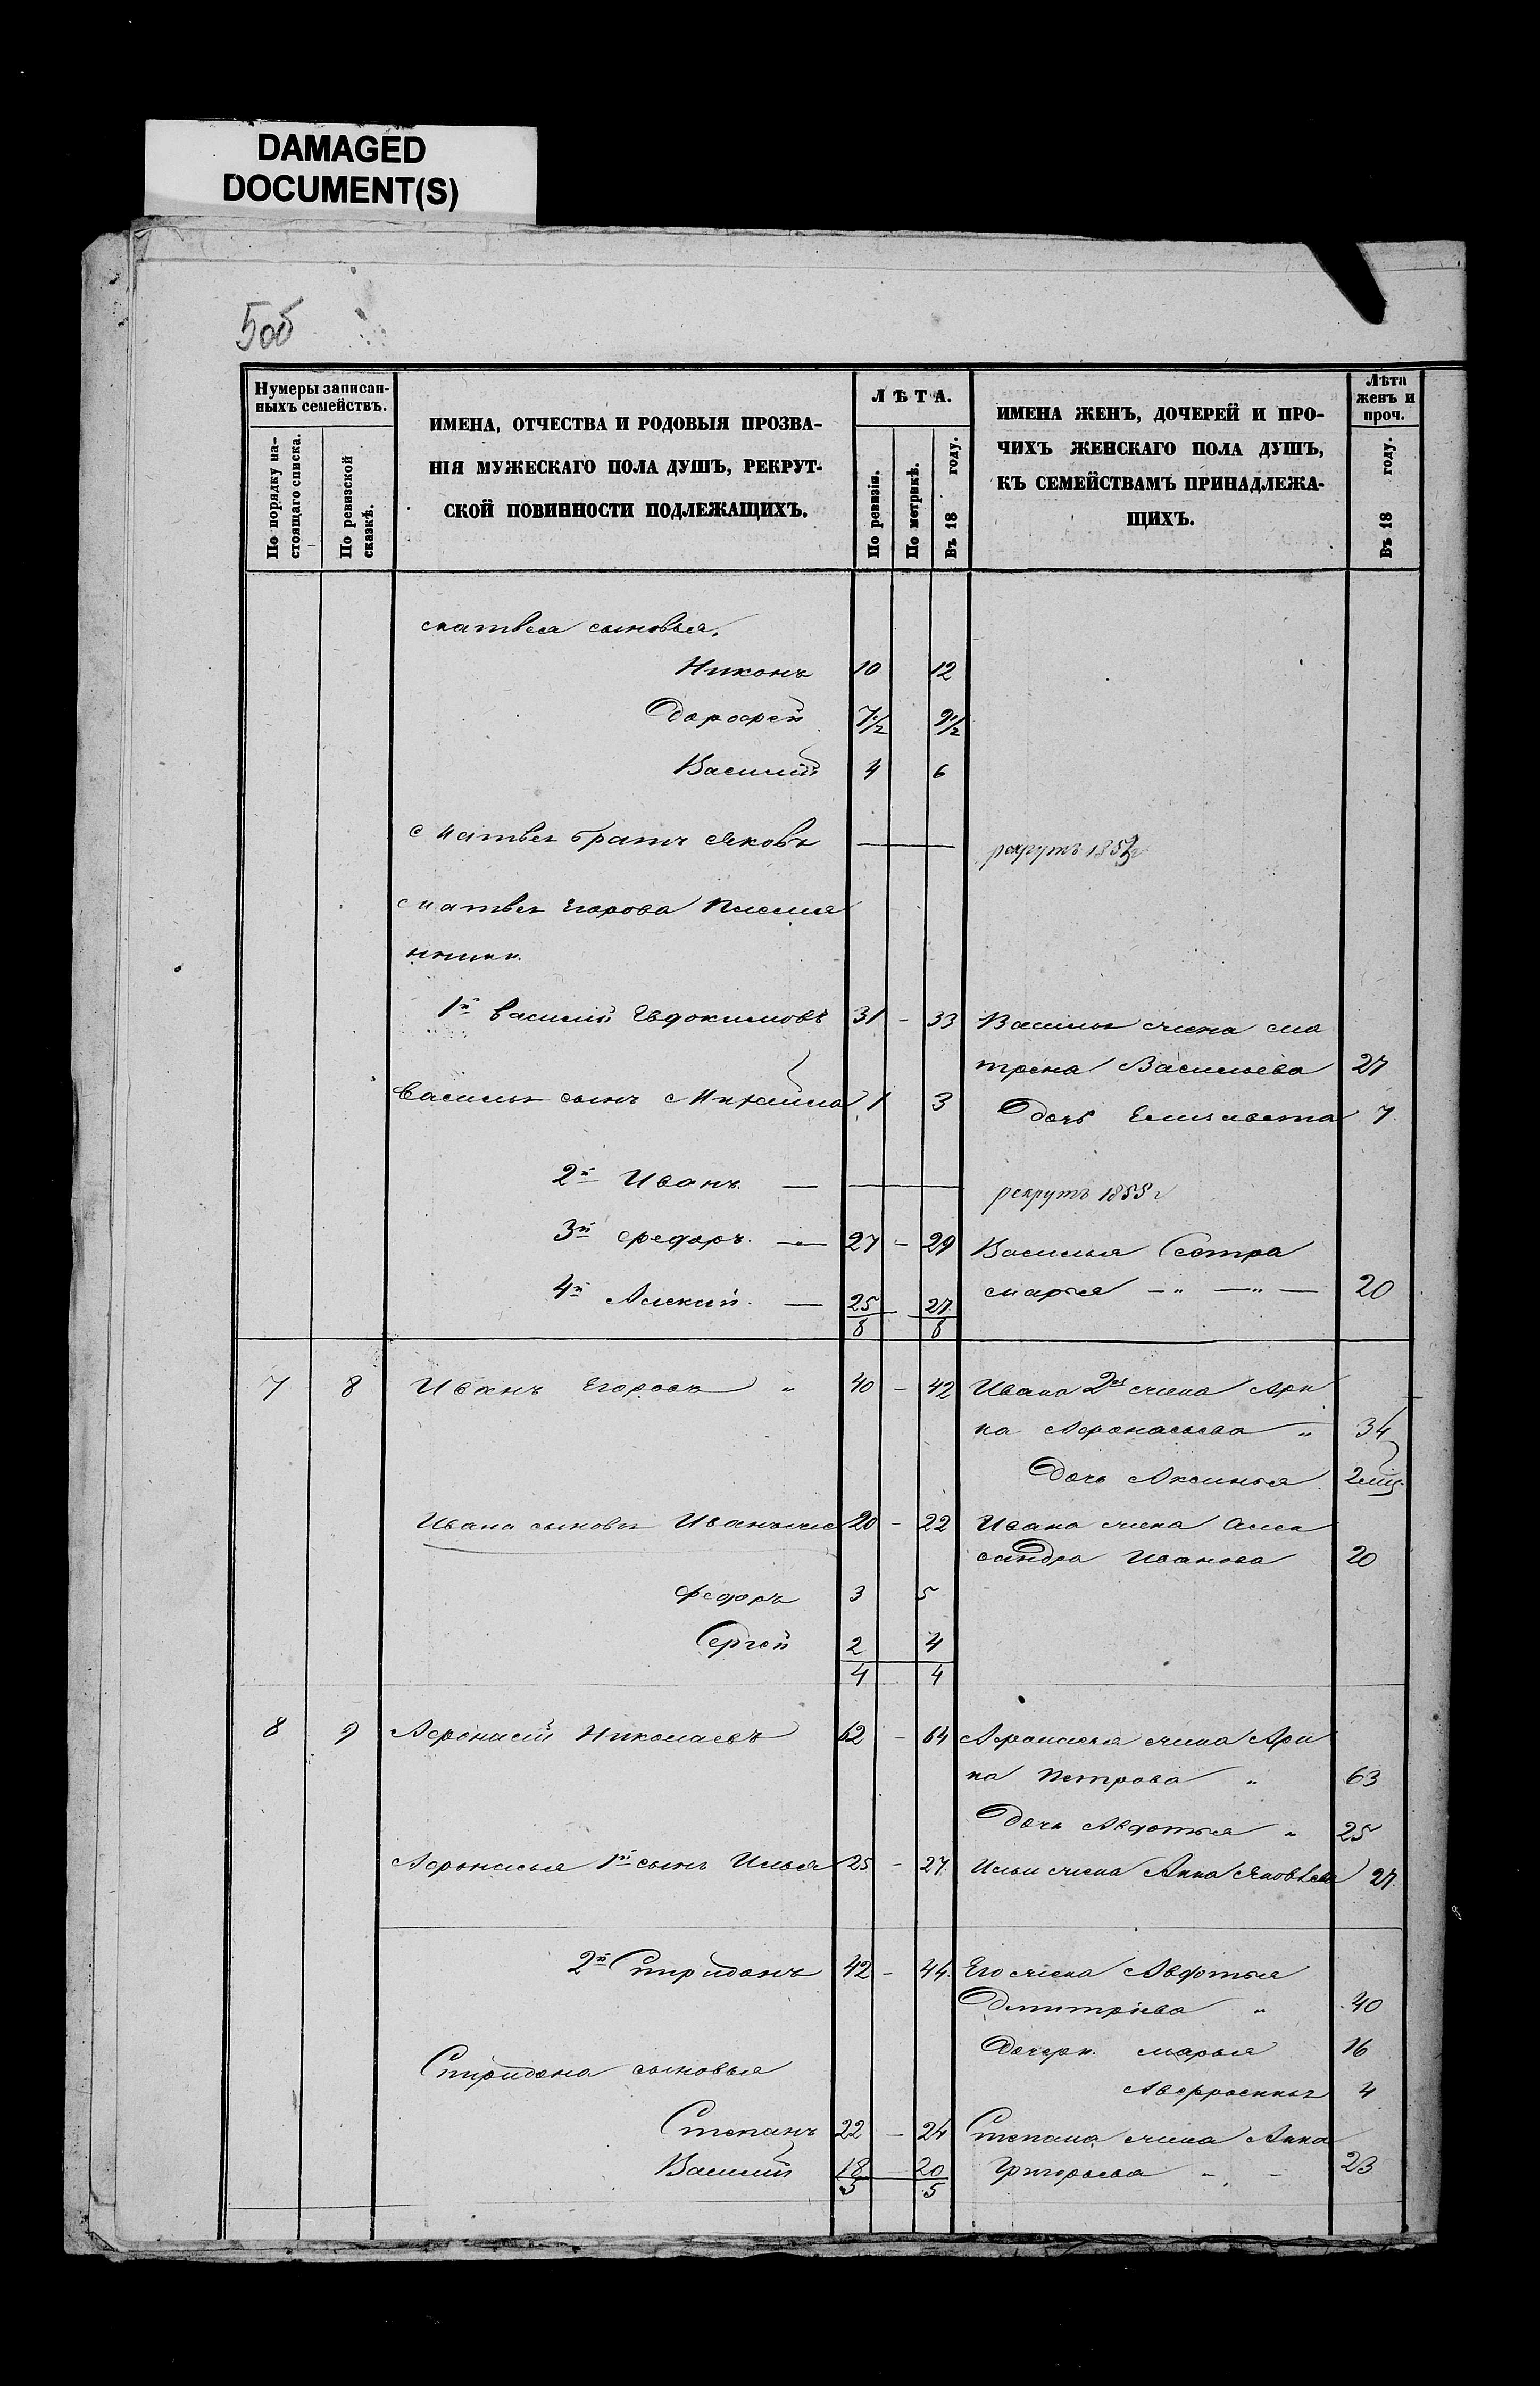 DAMAGED
DOCUMENT(S)
5об
Нумеры записан-
ныхъ семействъ.
По порядку на-
стоящаго списка.
По ревизской
сказкѣ.
ИМЕНА, ОТЧЕСТВА И РОДОВЫЯ ПРОЗВА-
НІЯ МУЖЕСКАГО ПОЛА ДУШЪ, РЕКРУТ-
СКОЙ ПОВИННОСТИ ПОДЛЕЖАЩИХЪ.
ЛѢТА.
По ревизіи.
По метрикѣ.
Въ 18 году.
ИМЕНА ЖЕНЪ, ДОЧЕРЕЙ И ПРО-
ЧИХЪ ЖЕНСКАГО ПОЛА ДУШЪ,
КЪ СЕМЕЙСТВАМЪ ПРИНАДЛЕЖА-
ЩИХЪ.
Лѣта
женъ и
проч.
Въ 18 году.
Матвея сыновья.
Никонъ 10 12
Дорофей 7 1/2 9 1/2
Василий 4 6
Матвея братъ Яковъ — рекрутъ
Матвея Егорова Племян
ники.
1й Василій Евдокимовъ 31 - 33 Василья жена Ма
трена Васильева 27
Василья сынъ Михайла 1 3 Дочь Елизавета 7
2й Иванъ — рекрутъ 1855 г
3й Федоръ. — 27 - 29 Василья Сестра
4й Алексей. — 25 27 Марья — „ — „ — 20
8 8
7 8 Иванъ Егоровъ „ 40 - 42 Ивана 2я жена Ари
на Афонасьева „ 34
Дочь Аксинья 2 мц.
Ивана сыновья Иванъ 20 - 22 Ивана жена Алек
сандра Иванова 20
Федоръ 3 5
Сергей 2 4
4 4
8 9 Афонасій Николаевъ 62 - 64 Афонасья жена Ари
на Петрова „ 63
Дочь Авдотья „ 25
Афонасья 1й сынъ Илья 25 - 27 Ильи жена Анна Яковлева 27
2й Спиридонъ 42 - 44 Его жена Авдотья
Дмитріева „ 40
Дочери. Марья 16
Спиридона сыновья
Афросинья 4
Степанъ 22 - 24 Степана жена Анна
Василій 18 20 Григорьева - - 23
5 5